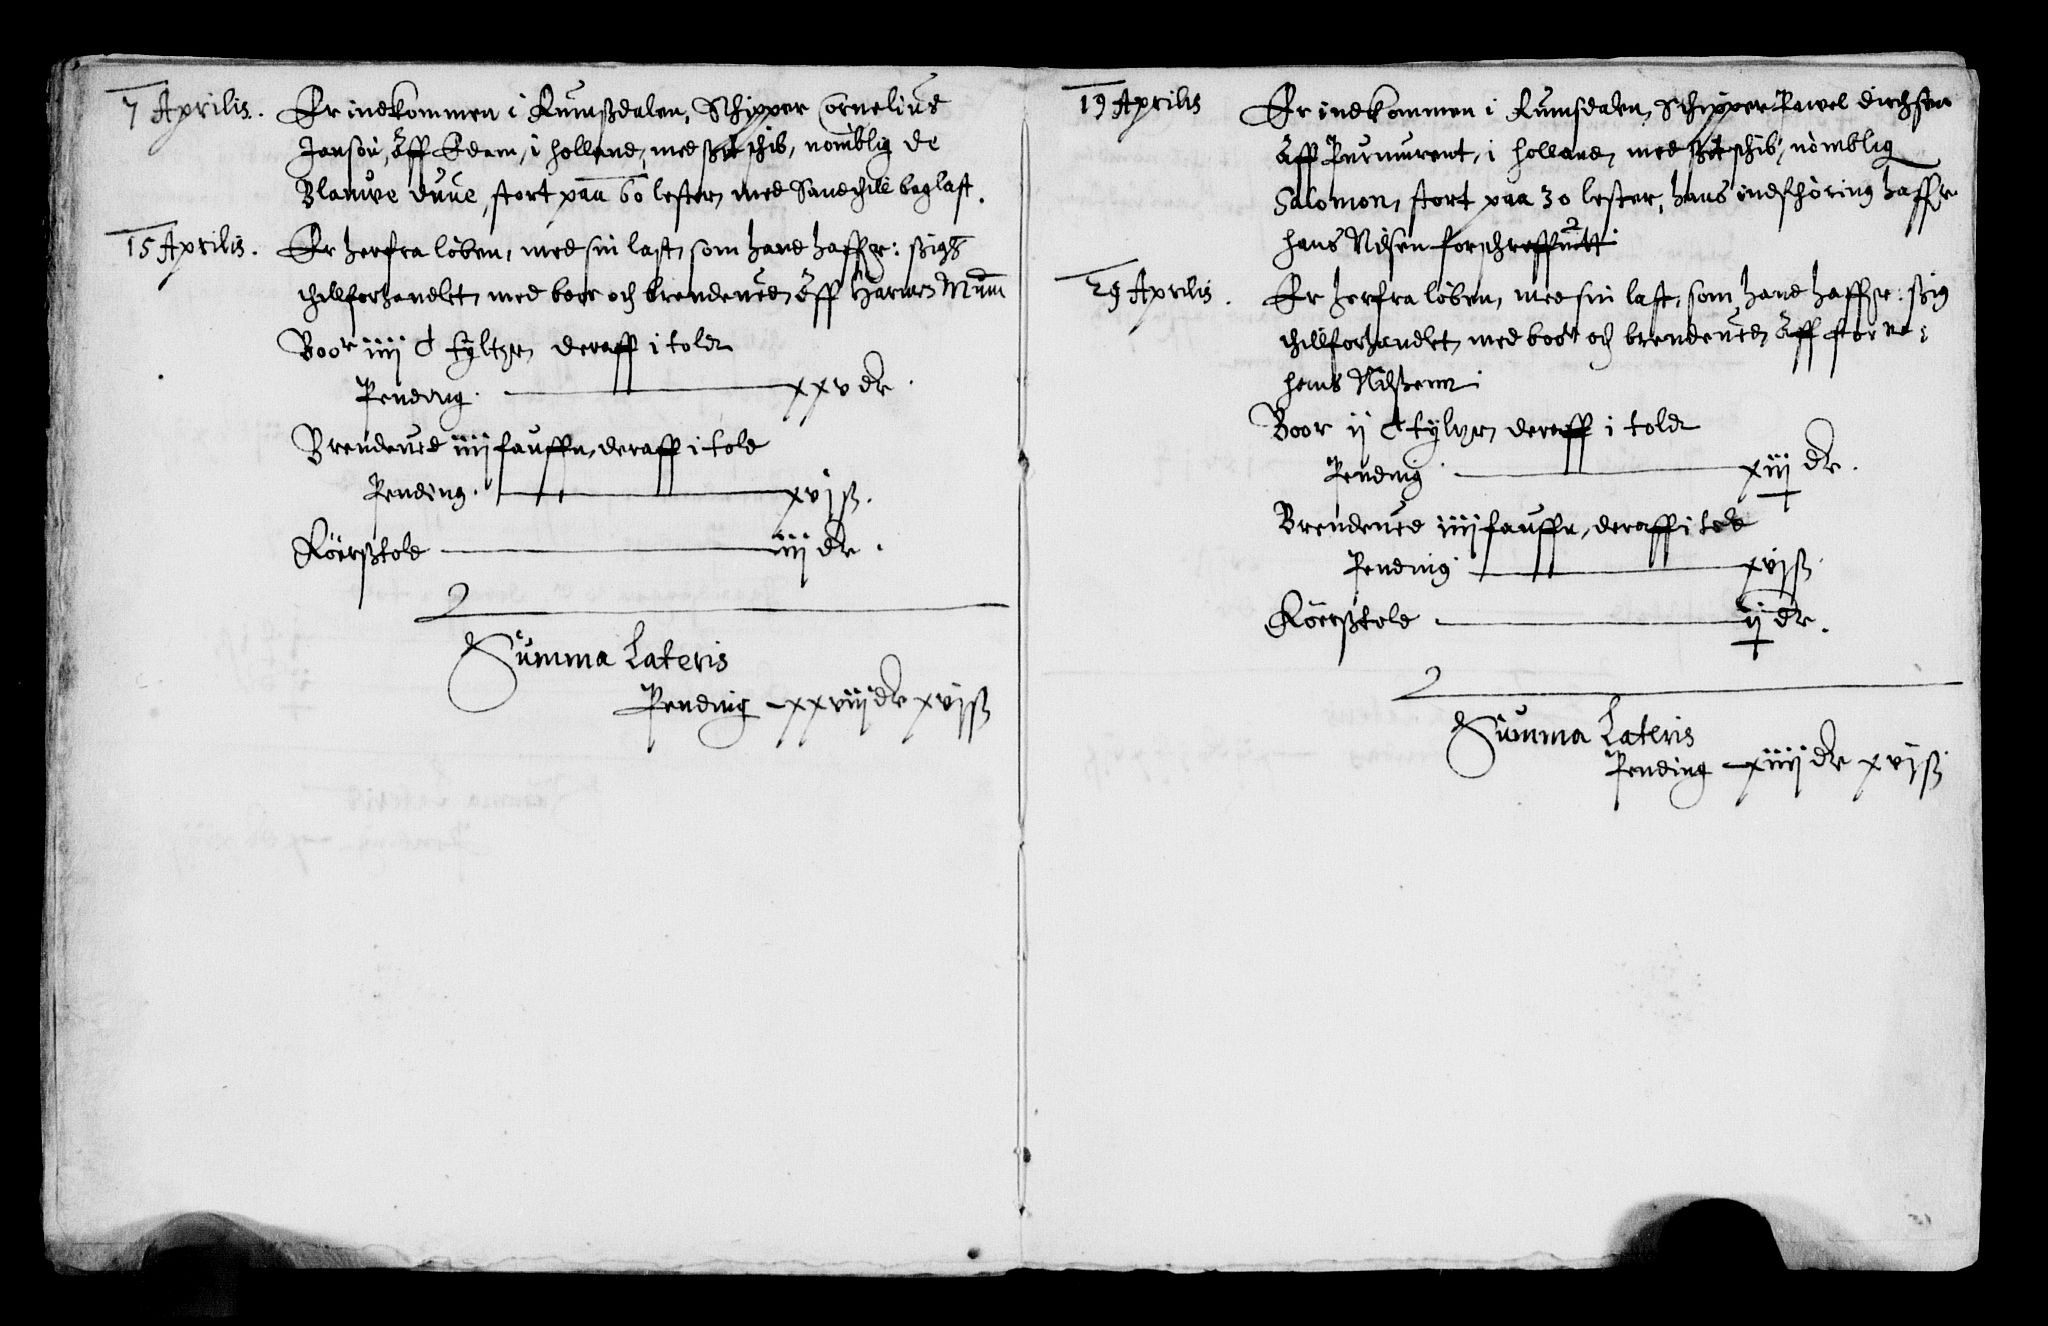 7 Aprilis. Er indkommen i Rumßdalen, Schipper Cornelius
Janson, Aff Edam, i holland, med ßit schib, nömblig de
Blauwe duue, stort paa 60 lester, med Sand chill baglast.
15 Aprilis. Er herfra löben, med sin last, som hand haffr: ßigh
chillforhandlet, med boor och brendeued, Aff Harmen Mum
Boor iiij C tylter, deraff i told
Pending. xxv dr.
Brendeued iiij fauffn, deraff i told
Pending. xvj ß.
Röerßtold iiij dr.
Summa Lateris
Pending xxviiij dr xvj ß
19 Aprilis Er indkommen i Rumsdalen, Schipper Pawel dirchsen
Aff Purmurent, i holland, med ßit schib, nömblig
Salomon, stort paa 30 lester, hans indföring haffr
hans Nilsen forschreffuitt
29 Aprilis. Er herfra löben, med sin last, som hand haffr: ßig
chillforhandlet, med boor och brendeued, Aff for ne:
hans Nilßenn
Boor ij C tylter, deraff i told
Pending xiij dr.
Brendeued iiij fauffn, deraff i told
Pending xvj ß
Röerßtold ij dr.
Summa Lateris
Pending xiiij dr xvj ß